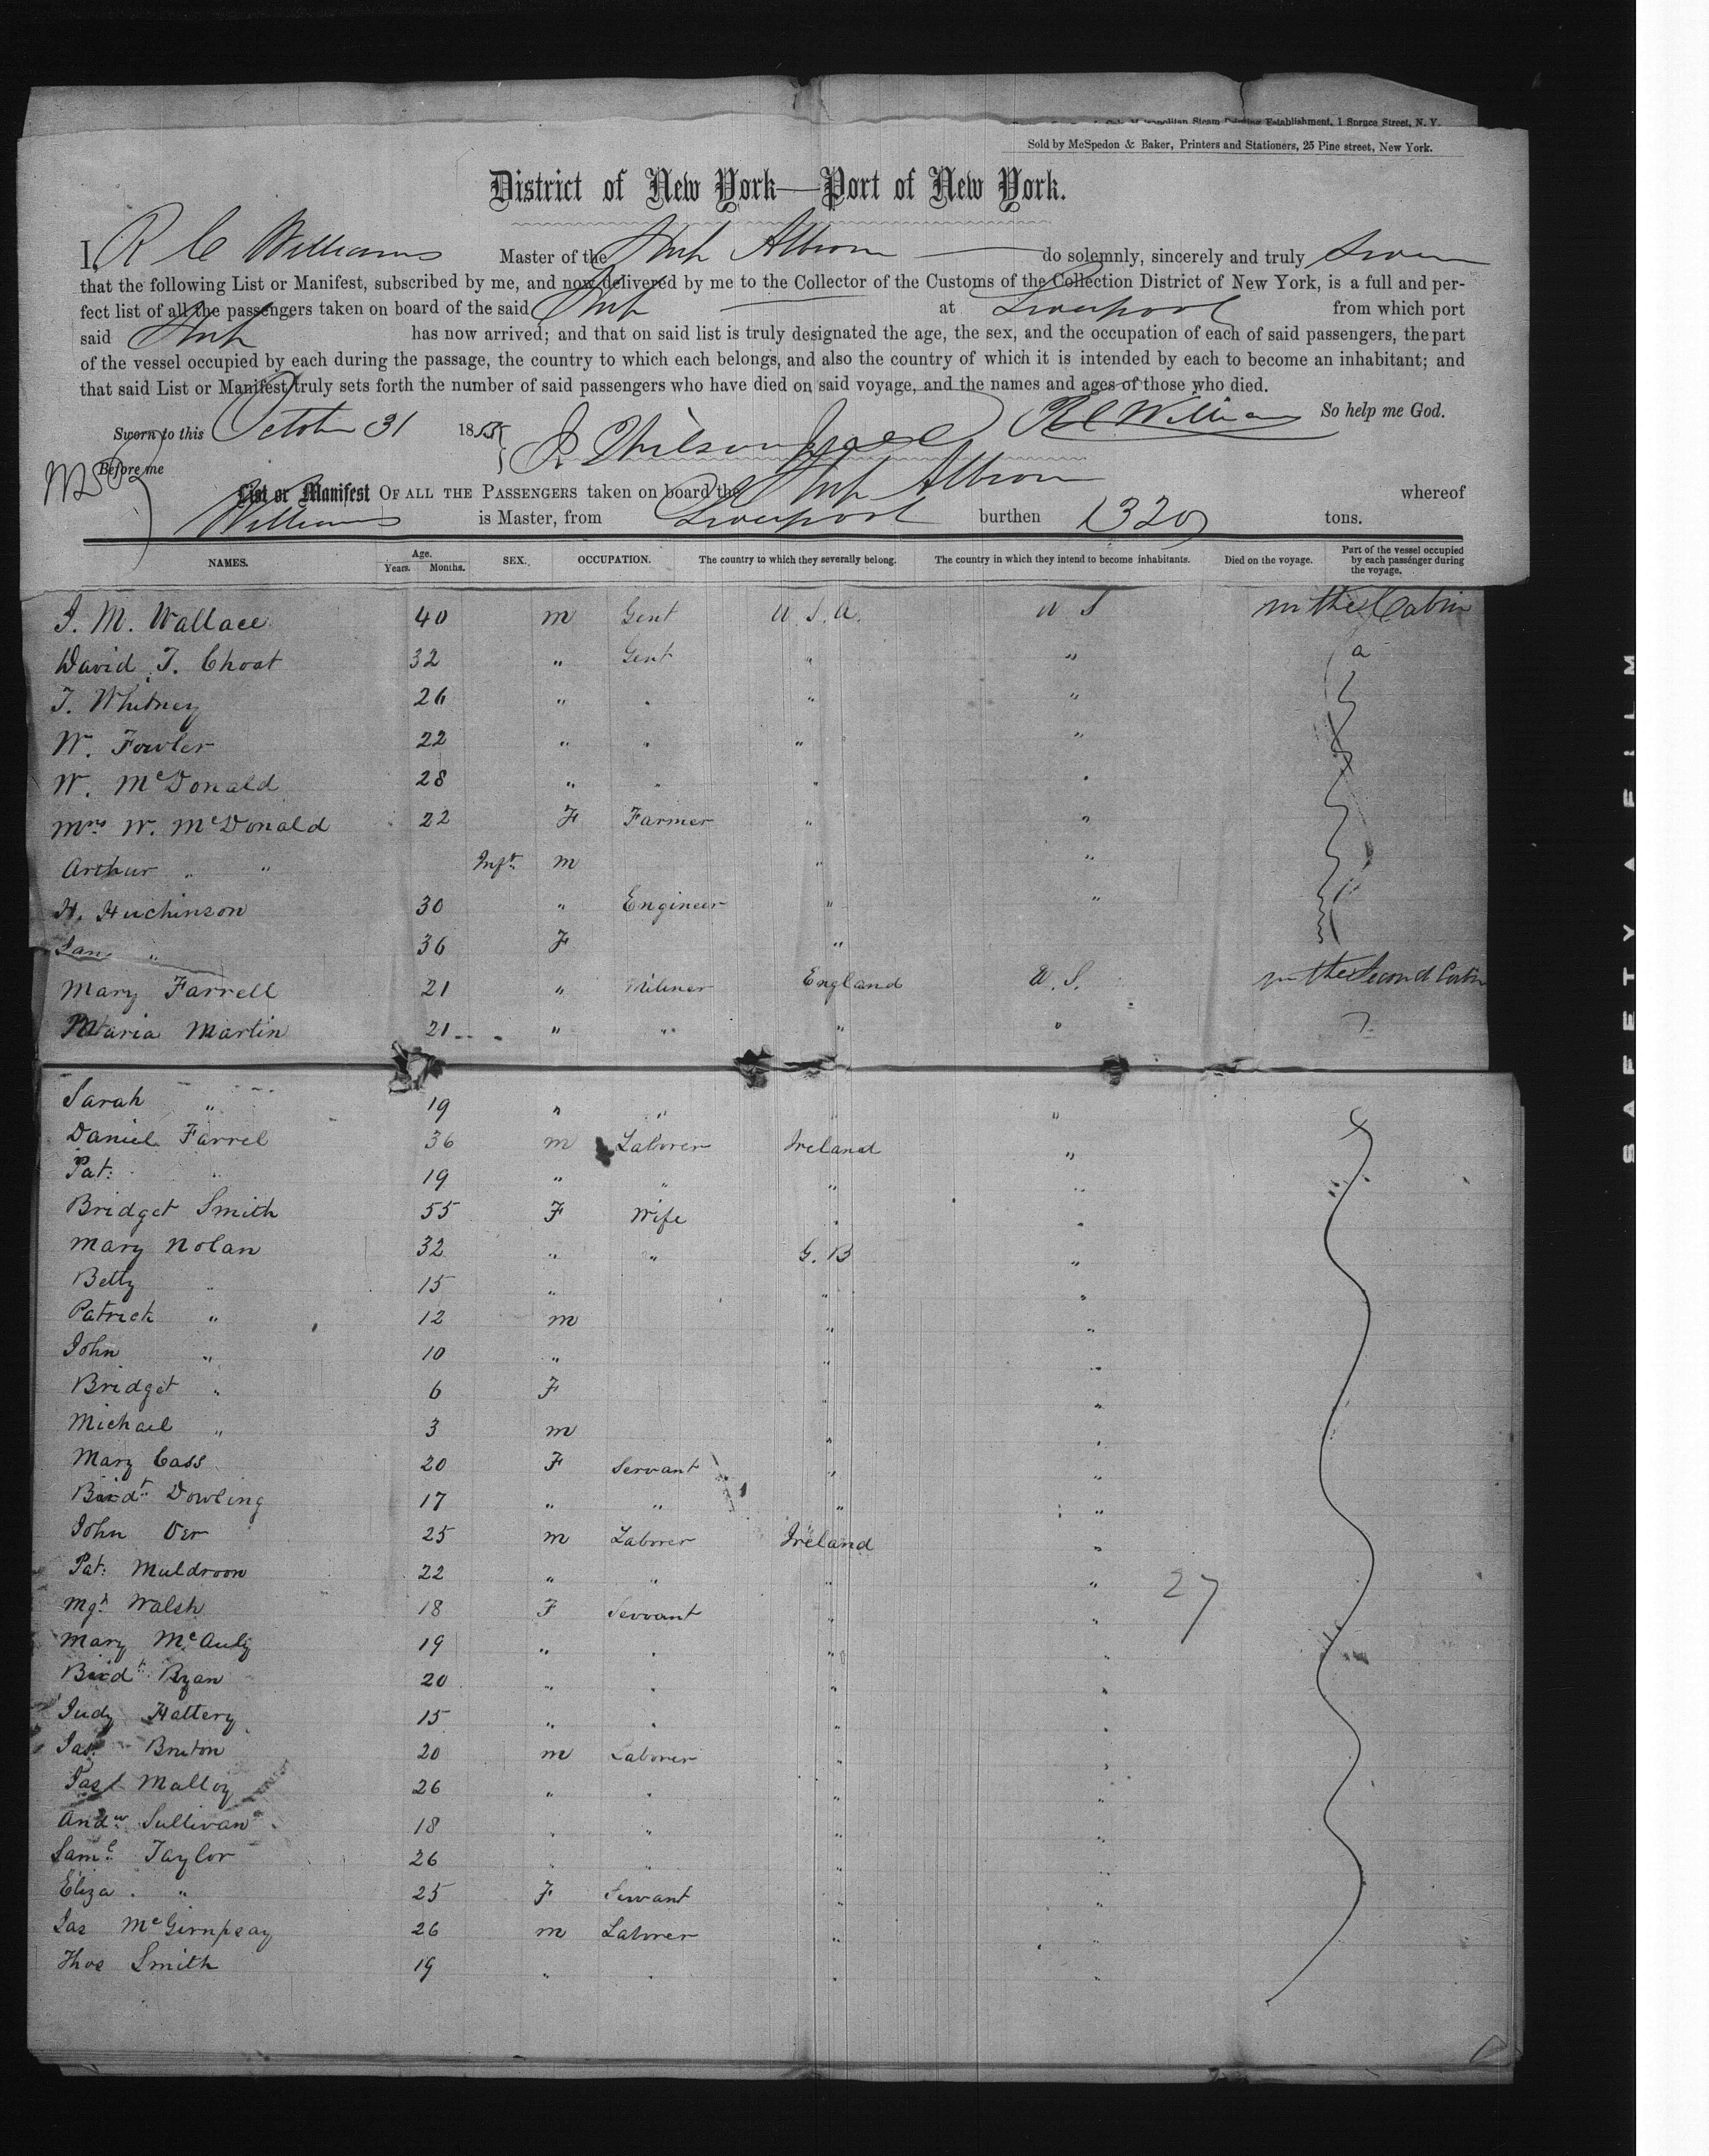 Metropolitan Steam Printing Establishment, 1 Spruce Street, N. Y.
Sold by McSpedon & Baker, Printers and Stationers, 25 Pine street, New York.
District of New York—Port of New York.
I, R C Williams Master of the Ship Albion do solemnly, sincerely and truly Swear
that the following List or Manifest, subscribed by me, and now delivered by me to the Collector of the Customs of the Collection District of New York, is a full and per-
fect list of all the passengers taken on board of the said Ship at Liverpool from which port
said Ship has now arrived; and that on said list is truly designated the age, the sex, and the occupation of each of said passengers, the part
of the vessel occupied by each during the passage, the country to which each belongs, and also the country of which it is intended by each to become an inhabitant; and
that said List or Manifest truly sets forth the number of said passengers who have died on said voyage, and the names and ages of those who died.
So help me God.
Sworn to this October 31 1855 R C Williams
Before me
List or Manifest OF ALL THE PASSENGERS taken on board the Ship Albion whereof
Williams is Master, from Liverpool burthen 1320 tons.
NAMES. Age. Years. Months. SEX. OCCUPATION. The country to which they severally belong. The country in which they intend to become inhabitants. Died on the voyage. Part of the vessel occupied by each passenger during the voyage.
J. M. Wallace 40 m Gent U.S.A. U S in the Cabin
David J. Choat 32 " Gent " "
T. Whitney 26 " " " "
W. Fowler 22 " " " "
W. McDonald 28 " " " "
Mrs W. McDonald 22 F Farmer " "
Arthur " " Inft. m " "
H. Huchinson 30 " Engineer " "
Jane " 36 F "
Mary Farrell 21 " Miliner England U.S. in the Second Cabin
Maria Martin 21 " " " "
Sarah " 19 " " " "
Daniel Farrel 36 m Laborer Ireland "
Pat: " 19 " " " "
Bridget Smith 55 F Wife " "
Mary Nolan 32 " " G.B "
Betty " 15 " " "
Patrick " 12 m " "
John " 10 " " "
Bridget " 6 F " "
Michael " 3 m " "
Mary Cass 20 F Servant " "
Birdt. Dowling 17 " " " "
John Orr 25 m Laborer Ireland "
Pat: Muldroon 22 " " " " 27
Mgt. Walsh 18 F Servant " "
Mary McAuly 19 " " " "
Birdt. Ryan 20 " " " "
Judy Hattery 15 " " " "
Jas. Bruton 20 m Laborer " "
Jas Malloy 26 " " " "
Andw. Sullivan 18 " " " "
Saml. Taylor 26 " " " "
Eliza " 25 F Servant " "
Jas 26 m Laborer " "
Thos Smith 19 " " " "
SAFETY FILM